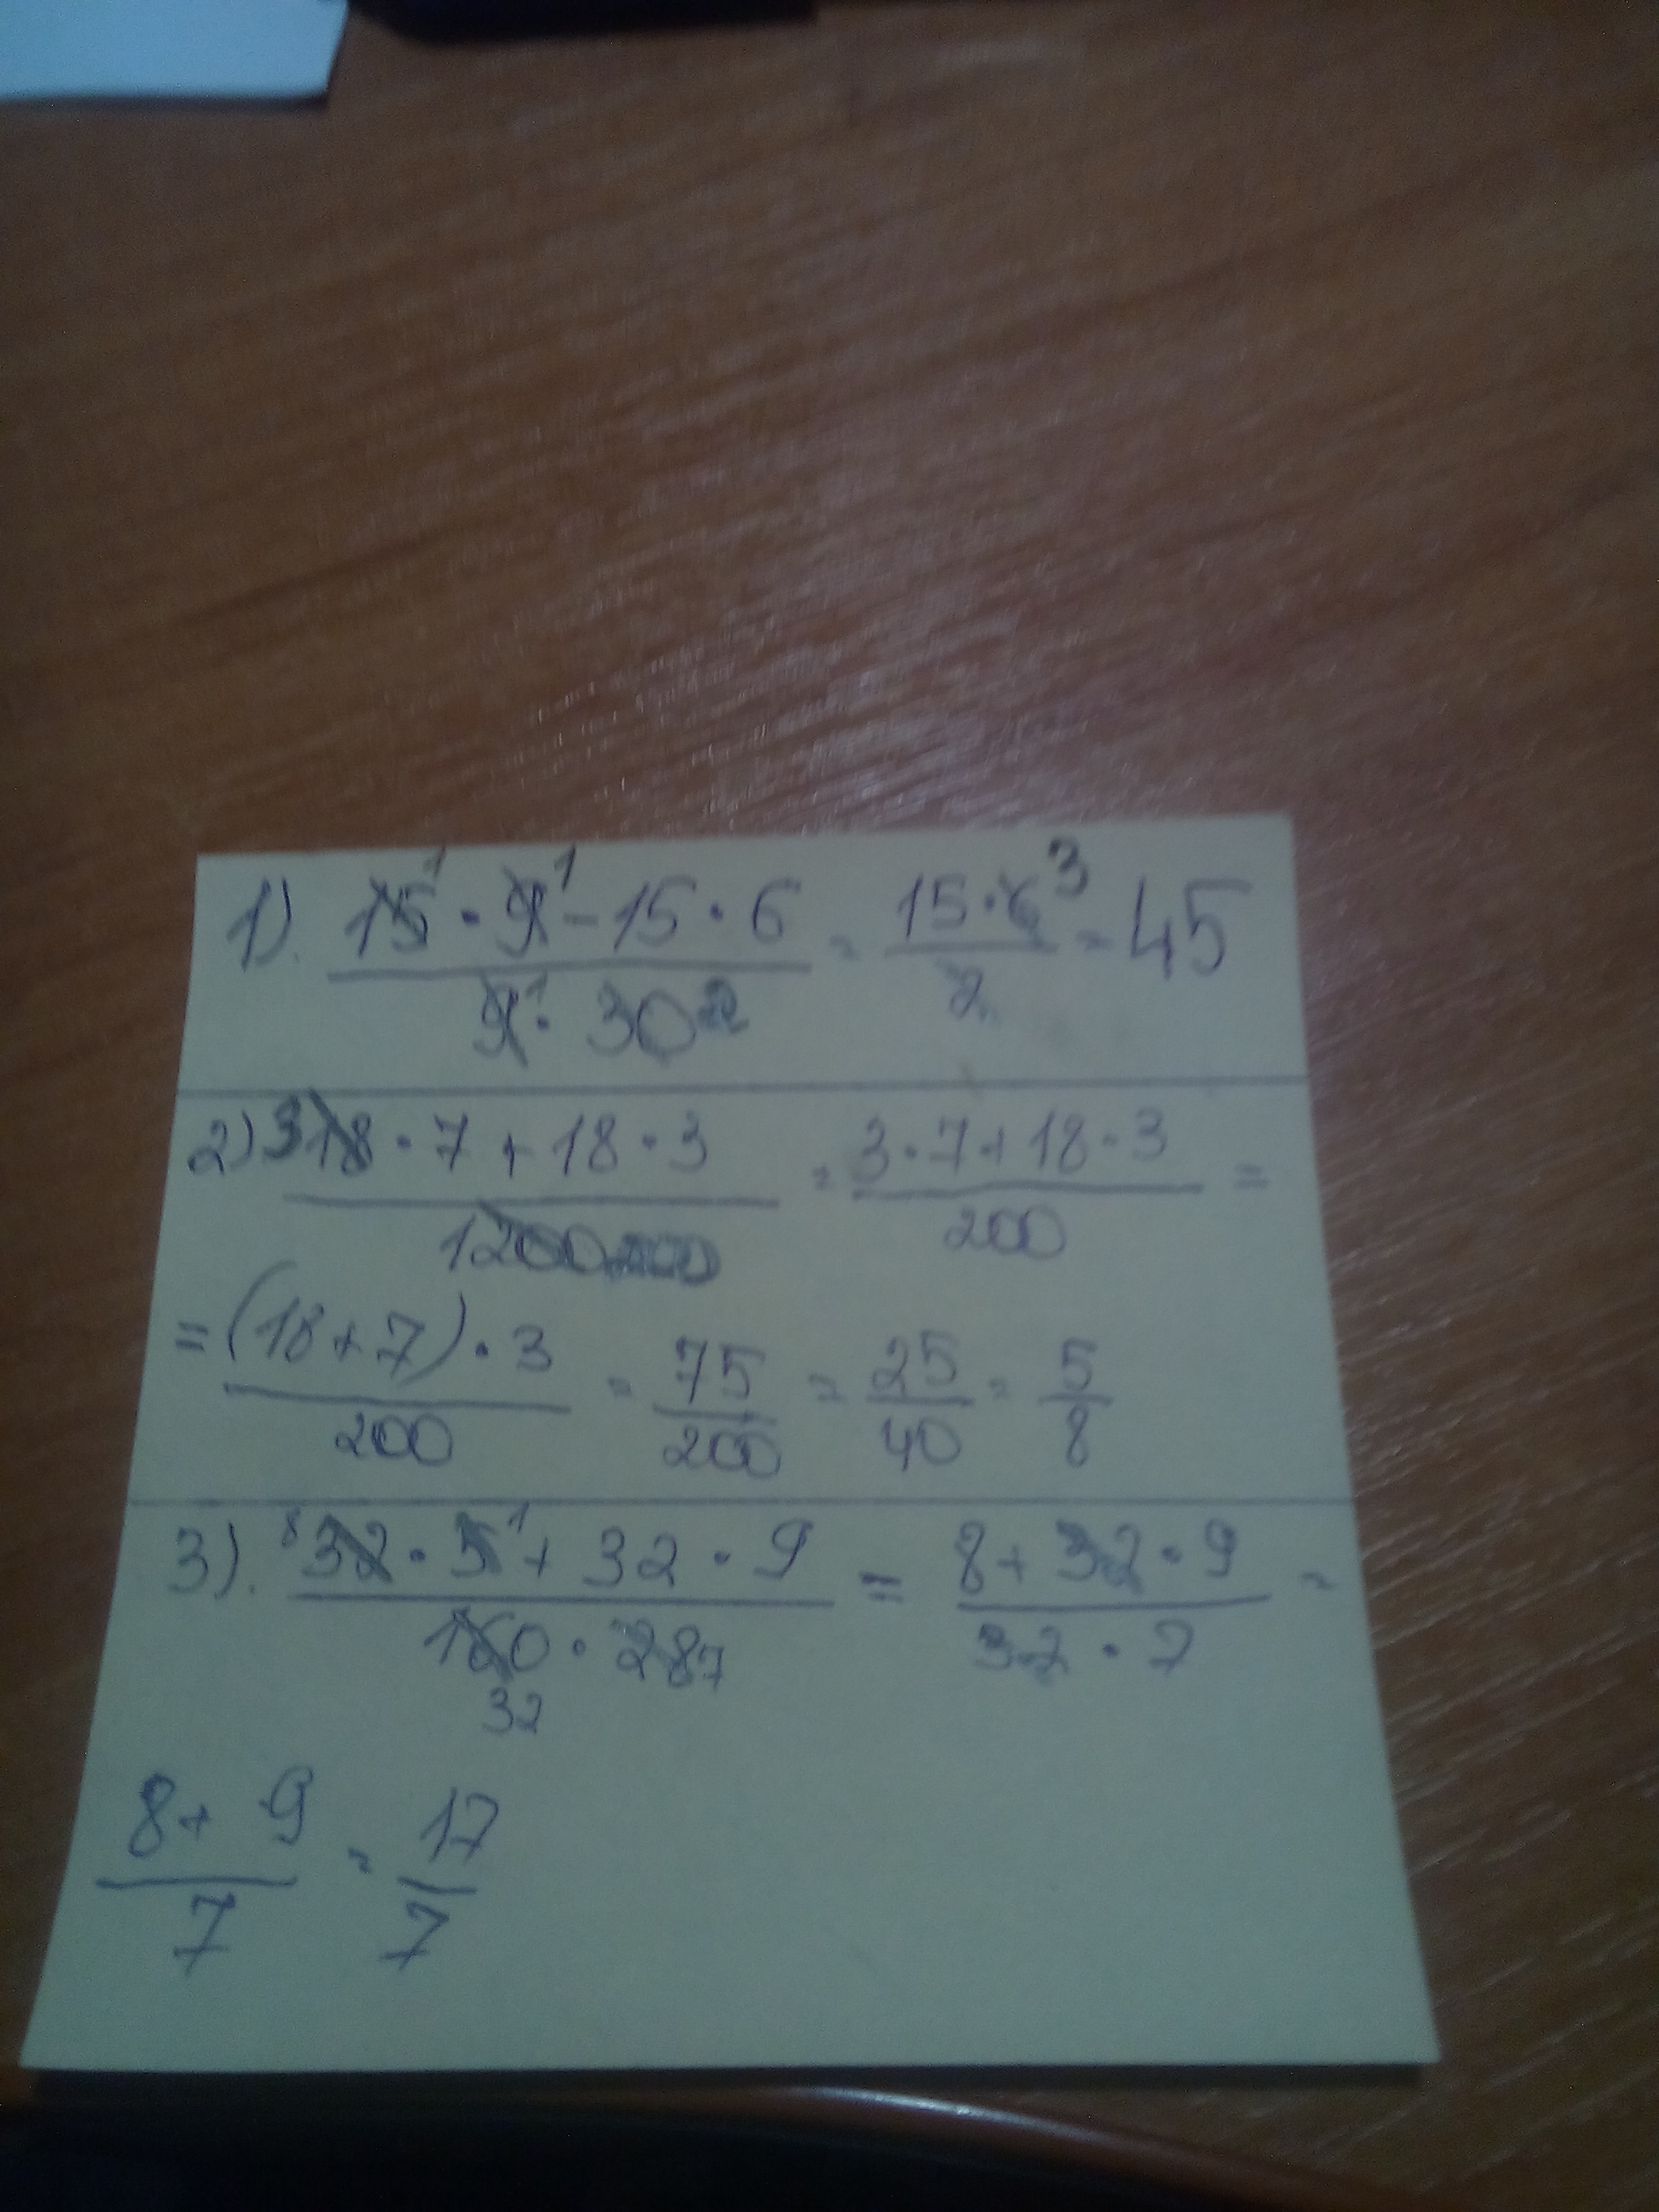 1). (15¹ · 9¹ - 15 · 6) / (9¹ · 30 2) = (15 · 6 3) / 2 = 45
2) (3 18 · 7 + 18 · 3) / (1200 200) = (3 · 7 + 18 · 3) / 200 =
= ((18 + 7) · 3) / 200 = 75 / 200 = 25 / 40 = 5 / 8
3). (8 32 · 5 1 + 32 · 9) / (160 32 · 28 7) = (8 + 32 · 9) / (32 · 7) =
(8 + 9) / 7 = 17 / 7